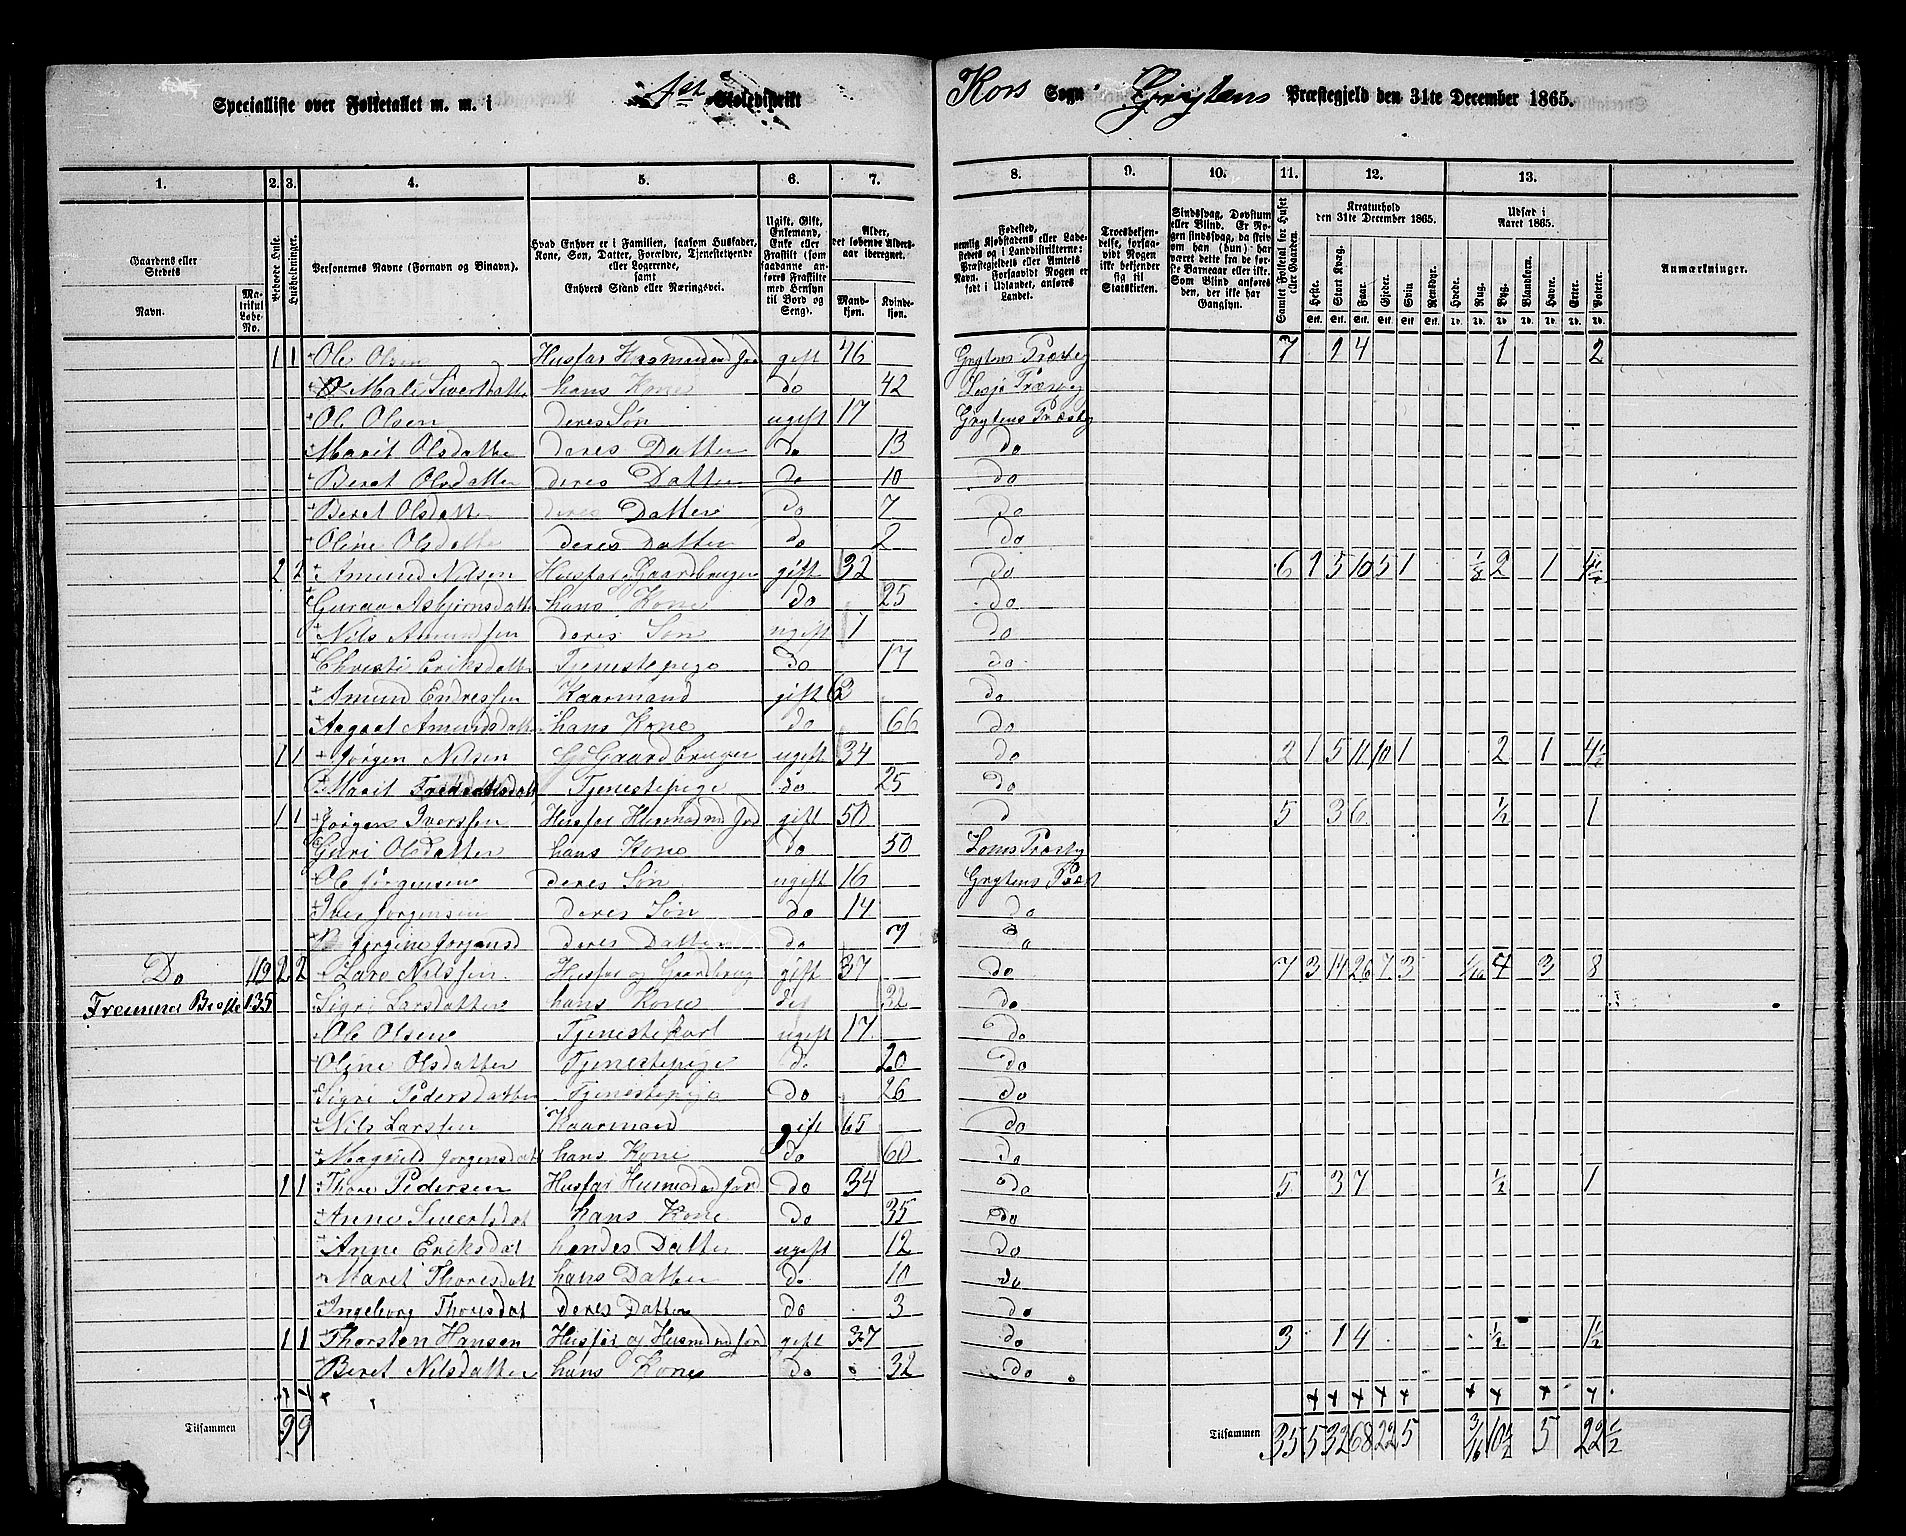 Specialliste over Folketallet m. m. i 4st Skoledistrikt Kors Sogn Grytens Præstegjeld den 31te December 1865.
1. 2. 3. 4. 5. 6. 7. 8. 9. 10. 11. 12. 13.
Gaardens eller Stedets
Navn.
Matrikul Løbe-No.
Beboede Huse.
Husholdninger.
Personernes Navne (Fornavn og Binavn).
Hvad Enhver er i Familien, saasom Husfader, Kone, Søn, Datter, Forældre, Tjenestetyende eller Logerende, samt Enhvers Stand eller Næringsvei.
Ugift, Gift, Enkemand, Enke eller Fraskilt (som saadanne anføres Fraskilte med Hensyn til Bord og Seng).
Alder, det løbende Aldersaar iberegnet.
Mandkjøn. Kvindekjøn.
Fødested, nemlig Kjøbstadens eller Ladestedets og i Landdistrikterne: Præstegjeldets eller Amtets Navn. Forsaavidt Nogen er født i Udlandet, anføres Landet.
Troesbekjendelse, forsaavidt Nogen ikke bekjender sig til Statskirken.
Sindssvag, Døvstum eller Blind. Er Nogen sindssvag, da skrives om han (hun) har været dette fra de første Barneaar eller ikke. Som Blind anføres den, der ikke har Gangsyn.
Samlet Folketal for Huset eller Gaarden.
Kreaturhold den 31te December 1865.
Heste. Stort Kvæg. Faar. Gjeder. Svin. Rensdyr.
Udsæd i Aaret 1865.
Hvede. Rug. Byg. Blandkorn. Havre. Erter. Poteter.
Anmærkninger.
1 1 Ole Olsen Husfar Husmand md Jord gift 46 Grytens Præstg 7 2 4 1 2
Mali Sivertsdatter hans Kone do 42 Lesje Præstg
Ole Olsen deres Søn ugift 17 Grytens Præstg
Marit Olsdatter deres Datter do 13 do
Beret Olsdatter deres Datter do 10 do
Beret Olsdatter deres Datter do 7 do
Oline Olsdatter deres Datter do 2 do
2 2 Amund Nilsen Husfar Gaardbruger gift 32 do 6 1 5 10 5 1 1/8 2 1 4 1/2
Guraa Asbjørnsdatter hans Kone do 25 do
Nils Amundsen deres Søn ugift 1 do
Christi Eriksdatter Tjenestepige do 17 do
Amund Endressen Kaarmand gift 62 do
Aagaat Amundsdatter hans Kone do 66 do
1 1 Jørgen Nilsen Gaardbruger ugift 34 do 2 1 5 11 10 1 2 1 4 1/2
Marit Tjenestepige do 25 do
1 1 Jørgen Iverssen Husfar Husmand md Jord gift 50 d 5 3 6 1/2 1
Guri Olsdatter hans Kone do 50 Loms Præstg
Ole Jørgensene deres Søn ugift 16 Grytens Præst
Iver Jørgensen deres Søn do 14 do
Jørgine Jørgensd deres Datter do 7 do
Do 119 2 2 Lars Nilssen Husfar og Gaardbrug gift 37 do 7 3 14 26 7 3 1/16 4 3 8
135 Sigri Larsdatter hans Kone do 32 do
Ole Olsene Tjenestekarl ugift 17 do
Oline Olsdatter Tjenestepige do 20 do
Sigri Pedersdatter Tjenestepige do 26 do
Nils Larsten Kaarmand gift 65 do
Magnild Jørgensdatt hans Kone do 60 do
1 1 Thore Pedersen Husfar Husmand md Jord do 34 do 5 3 7 1/2 1
Anne Sivertsdat hans Kone do 35 do
Anne Eriksdat hendes Datter ugift 12 do
Maret Thoresdatt hans Datter do 10 do
Ingeborg Thoresdat deres Datter do 3 do
1 1 Thorsten Hansen Husfar og Husmd md Jord gift 37 do 3 1 4 1/2 1 1/2
Beret Nilsdatter hans Kone do 32 do
Tilsammen 9 9 Tilsammen 35 5 32 68 22 5 3/16 10 1/2 5 22 1/2